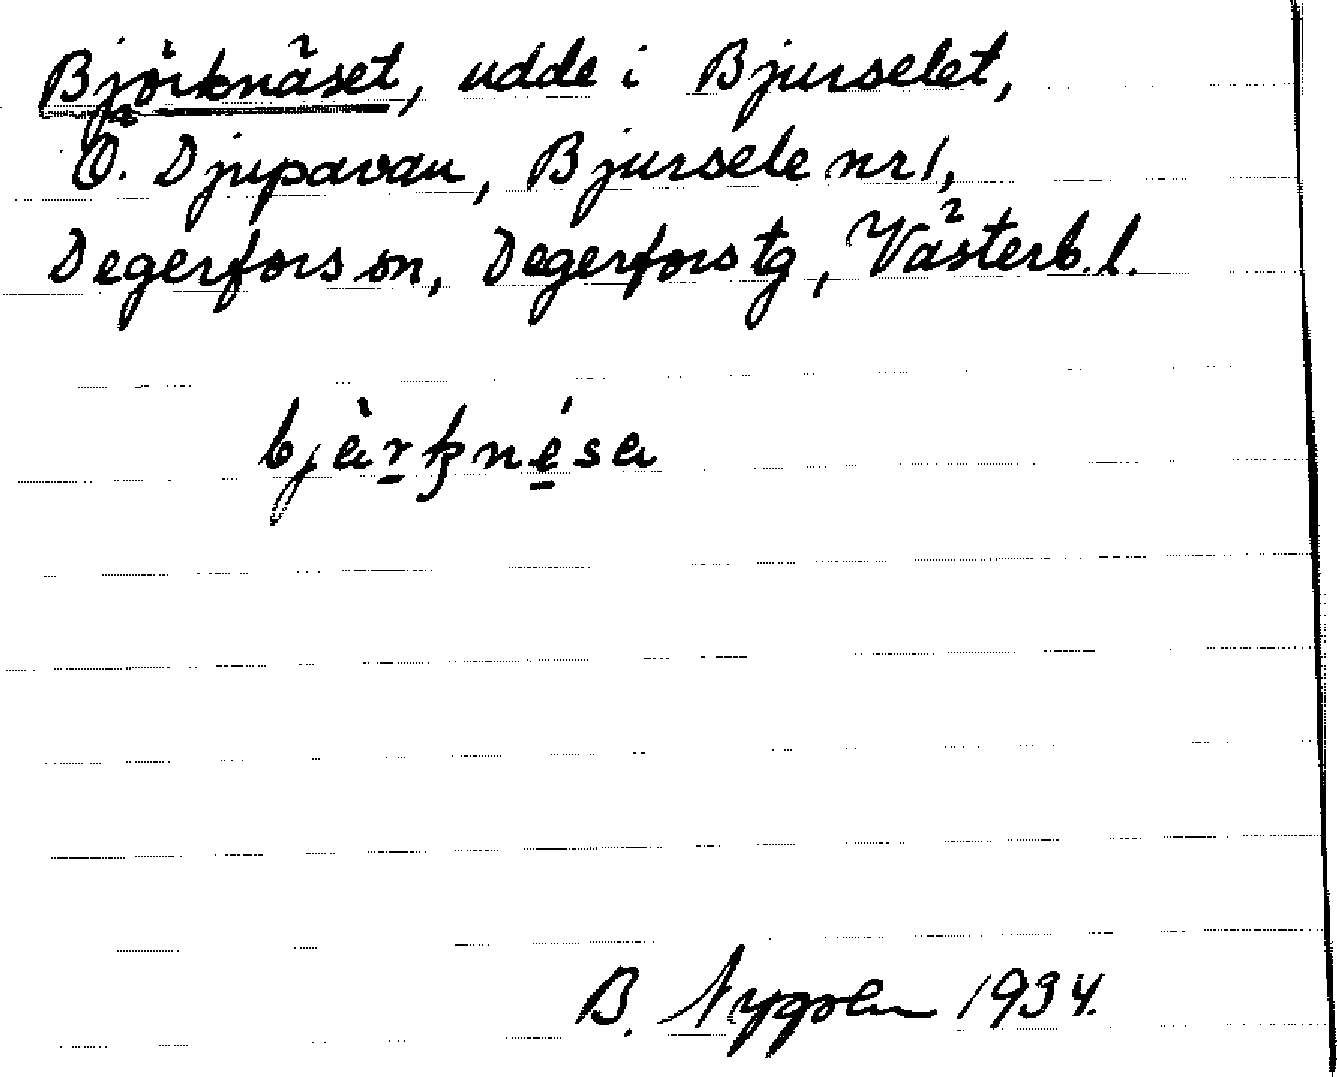 Björknäset, udde i Bjurselet,
Ö. Djupavan, Bjursele nr 1,
Degerfors sn, Degerfors tg, Västerb. l.
bjàrknésa
B. Nygren 1934.